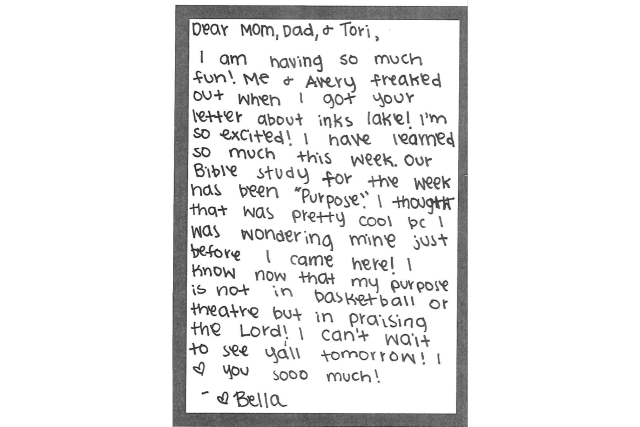 Dear Mom, Dad, & Tori,
I am having so much
fun! Me & Avery freaked
out when I got your
letter about inks lake! I'm
so excited! I have learned
so much this week. Our
Bible study for the week
has been "Purpose." I thought
that was pretty cool bc I
was wondering mine just
before I came here! I
know now that my purpose
is not in basketball or
theatre but in praising
the Lord! I can't wait
to see yall tomorrow! I
♡ you sooo much!
- ♡ Bella